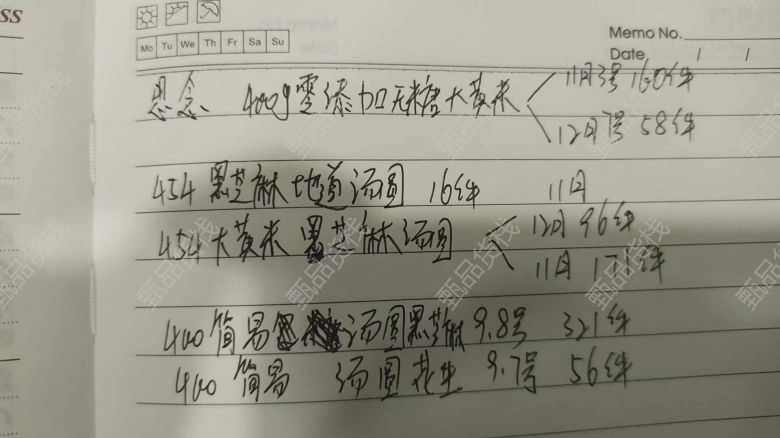 ss
Memo No.
Mo Tu We Th Fr Sa Su
Date / /
思念 400g零添加无糖大黄米
11月3号 160件
12月7号 58件
454 黑芝麻地道汤圆 16件 11月
454大黄米 黑芝麻汤圆
12月 96件
11月 171件
400简易 汤圆黑芝麻 9.8号 321件
400 简易 汤圆花生 9.7号 56件
甄品货栈